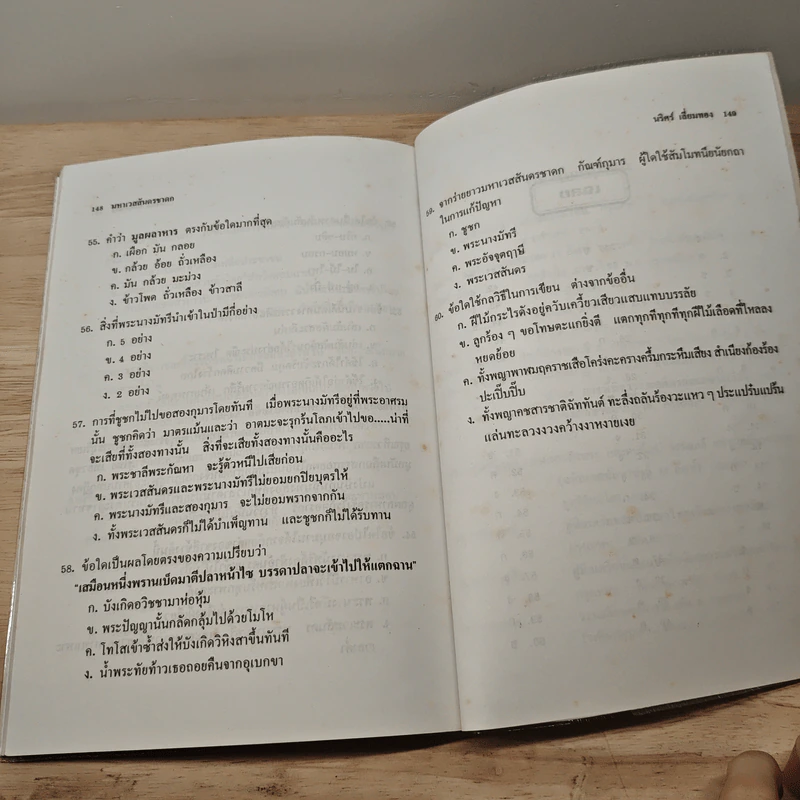 148 มหาเวสสันดรชาดก
55. คำว่า มูลผลาหาร ตรงกับข้อใดมากที่สุด
ก. เผือก มัน กลอย
ข. กล้วย อ้อย ถั่วเหลือง
ค. มัน กล้วย มะม่วง
ง. ข้าวโพด ถั่วเหลือง ข้าวสาลี
56. สิ่งที่พระนางมัทรีนำเข้าในป่ามีกี่อย่าง
ก. 5 อย่าง
ข. 4 อย่าง
ค. 3 อย่าง
ง. 2 อย่าง
57. การที่ชูชกไม่ไปขอสองกุมารโดยทันที เมื่อพระนางมัทรีอยู่ที่พระอาศรม
นั้น ชูชกคิดว่า มาตรแม้นและว่า อาตมะจะรุกร้นโลภเข้าไปขอ.....น่าที่
จะเสียที่ทั้งสองทางนั้น สิ่งที่จะเสียทั้งสองทางนั้นคืออะไร
ก. พระชาลีพระกัณหา จะรู้ตัวหนีไปเสียก่อน
ข. พระเวสสันดรและพระนางมัทรีไม่ยอมยกปิยบุตรให้
ค. พระนางมัทรีและสองกุมาร จะไม่ยอมพรากจากกัน
ง. ทั้งพระเวสสันดรก็ไม่ได้บำเพ็ญทาน และชูชกก็ไม่ได้รับทาน
58. ข้อใดเป็นผลโดยตรงของความเปรียบว่า
"เสมือนหนึ่งพรานเบ็ดมาตีปลาหน้าไซ บรรดาปลาจะเข้าไปให้แตกฉาน"
ก. บังเกิดอวิชชามาห่อหุ้ม
ข. พระปัญญานั้นกลัดกลุ้มไปด้วยโมโห
ค. โทโสเข้าซ้ำส่งให้บังเกิดวิหิงสาขึ้นทันที
ง. น้ำพระทัยท้าวเธอถอยคืนจากอุเบกขา
นริศร์ เสี่ยมทอง 149
59. จากร่ายยาวมหาเวสสันดรชาดก กัณฑ์กุมาร ผู้ใดใช้สัมโมทนียนัยกถา
ในการแก้ปัญหา
ก. ชูชก
ข. พระนางมัทรี
ค. พระอัจจุตฤๅษี
ง. พระเวสสันดร
60. ข้อใดใช้กลวิธีในการเขียน ต่างจากข้ออื่น
ก. ผีไม้กระไรดังอยู่ควับเควี้ยวเสียวแสบแทบบรรลัย
ข. ลูกร้อง ๆ ขอโทษตะแกยิ่งตี แตกทุกทีทุกทีทุกฝีไม้เลือดที่ไหลลง
หยดย้อย
ค. ทั้งพญาพาฬมฤคราชเสือโคร่งคะครางครึ้มกระหึมเสียง สำเนียงก้องร้อง
ปะเปิ๊บปิ๊บ
ง. ทั้งพญาคชสารชาติฉัททันต์ ทะลึ่งถลันร้องวะแหว ๆ ประแปร้นแปร๊น
แล่นทะลวงงวงคว้างงาหงายเงย